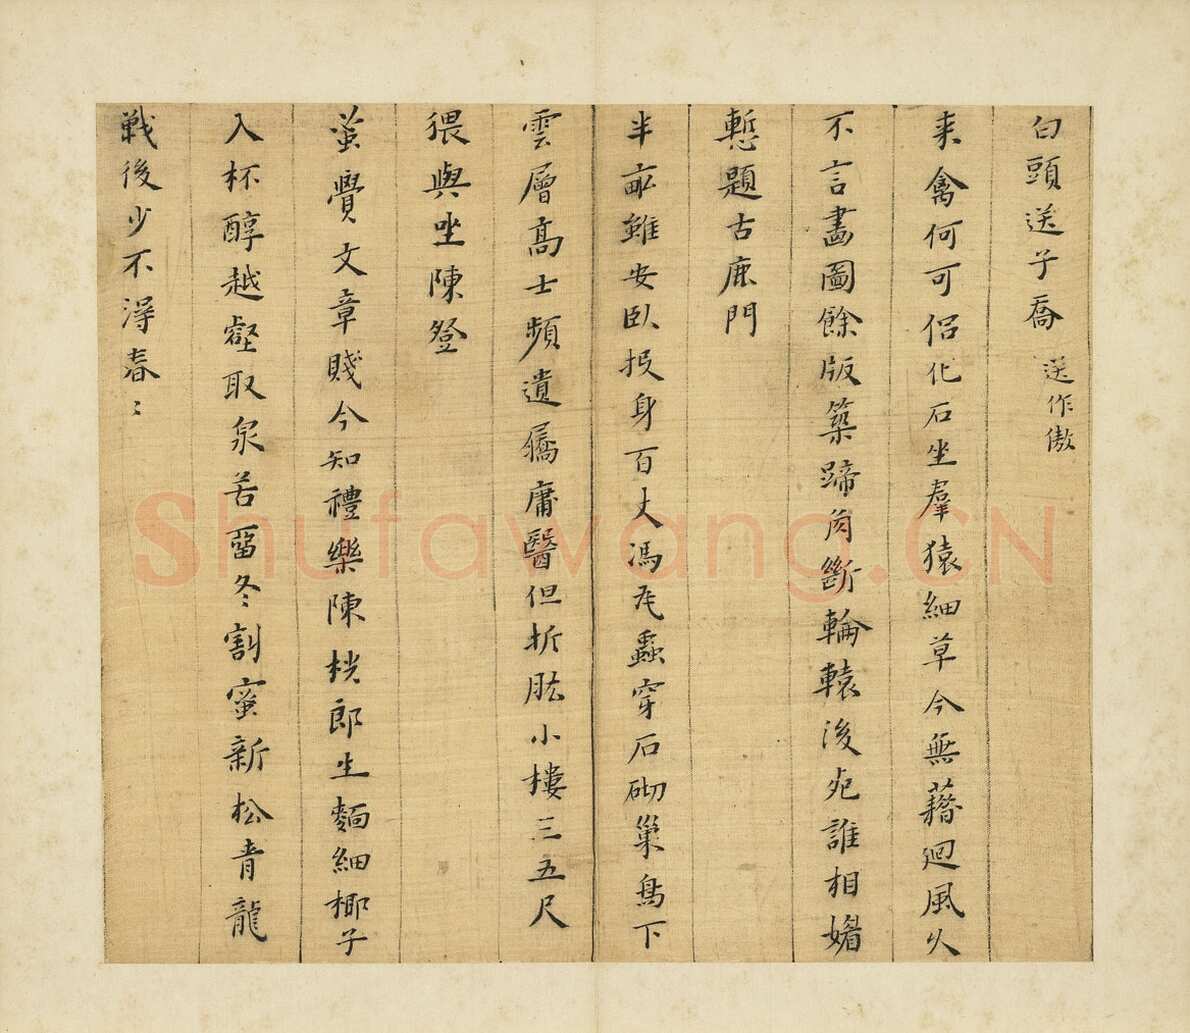 白頭送子喬 送作傲
来禽何可侶化石坐羣猿細草今無藉迴風久
不言畵圖餘版築蹄角斷輪轅後死誰相媚
慙題古鹿門
半畝雖安臥投身百丈馮虎蝨穿石砌巢鳥下
雲層高士頻遺屩庸醫但折肱小樓三五尺
猥與坐陳登
蚤覺文章賤今知禮樂陳桄郎生麵細椰子
入杯醇越壑取泉苦畱冬割蜜新松青龍
戰後少不得春:
Shufawang.CN